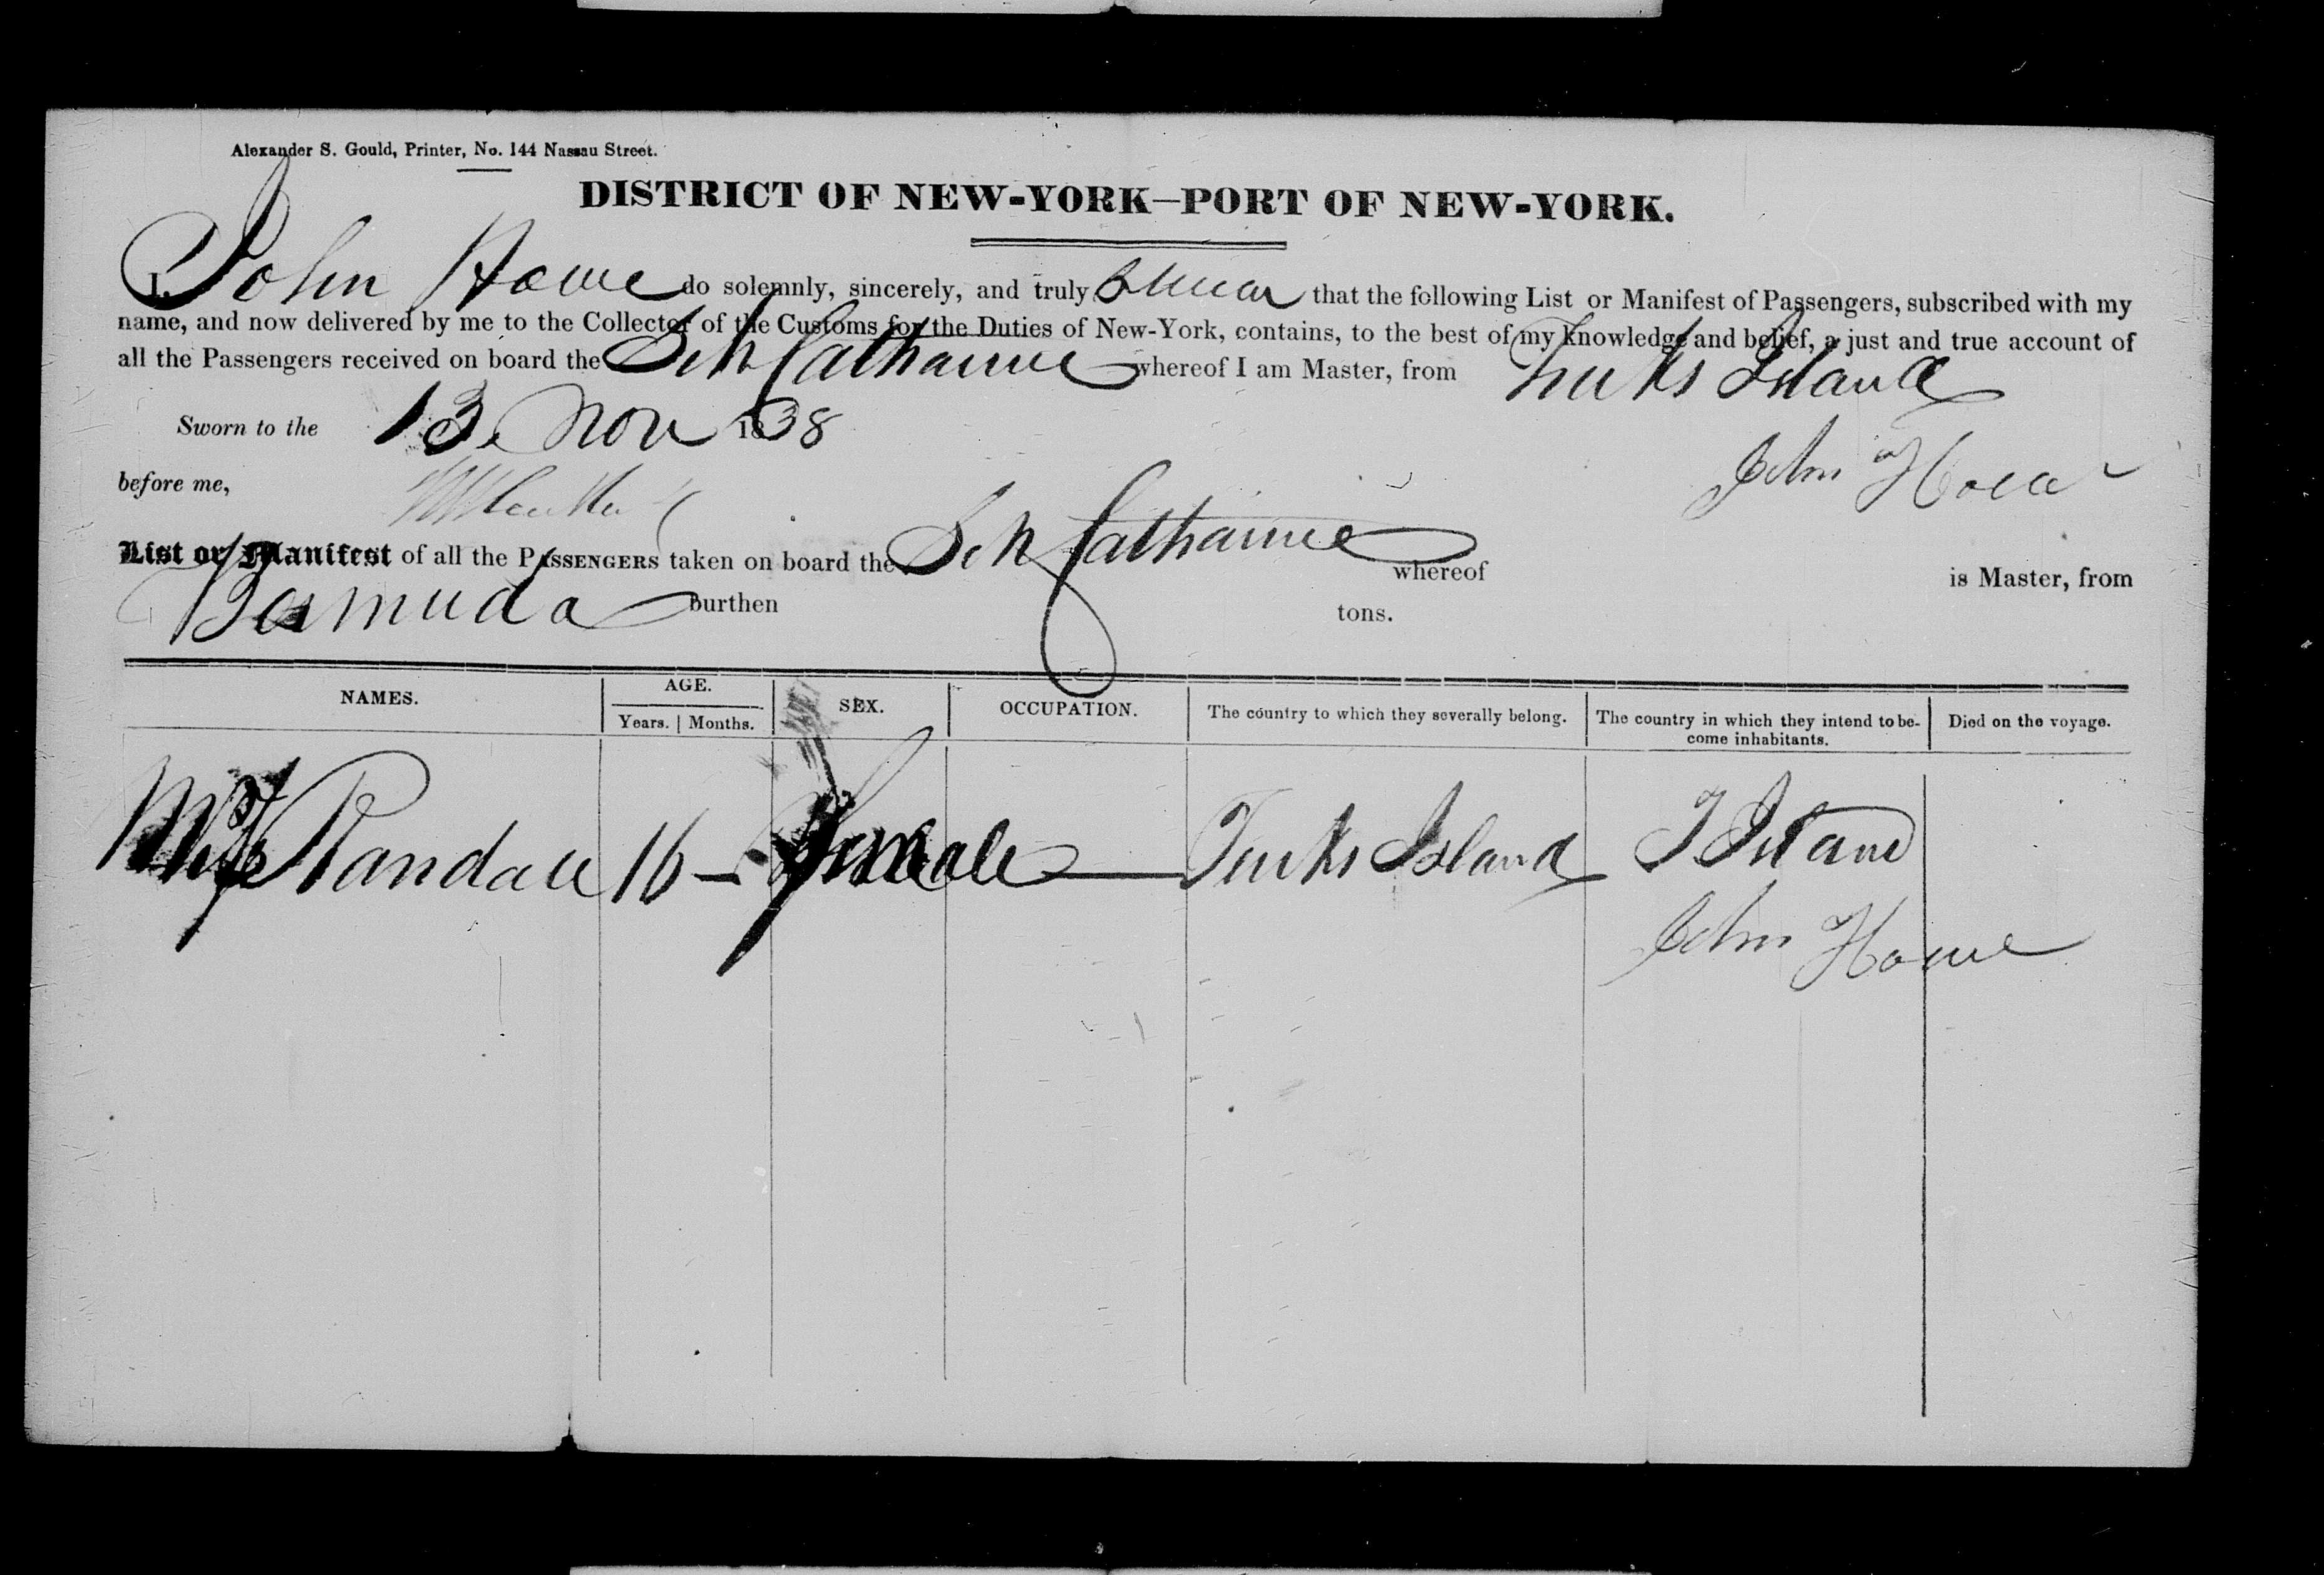 Alexander S. Gould, Printer, No. 144 Nassau Street.
DISTRICT OF NEW-YORK—PORT OF NEW-YORK.
I, John Howe do solemnly, sincerely, and truly Swear that the following List or Manifest of Passengers, subscribed with my
name, and now delivered by me to the Collector of the Customs for the Duties of New-York, contains, to the best of my knowledge and belief, a just and true account of
all the Passengers received on board the Sch Catharine whereof I am Master, from Turks Island
Sworn to the 13 Nov 1838
before me,
John Howe
List or Manifest of all the PASSENGERS taken on board the Sch Catharine whereof is Master, from
Bermuda burthen tons.
NAMES. AGE. SEX. OCCUPATION. The country to which they severally belong. The country in which they intend to be- Died on the voyage.
Years. | Months. come inhabitants.
Randall 16 — Female — Turks Island T Island
John Howe